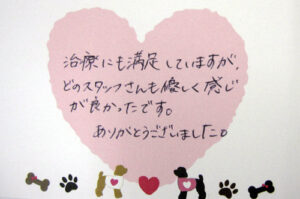 治療にも満足していますが、
どのスタッフさんも優しく感じ
が良かったです。
ありがとうございました。